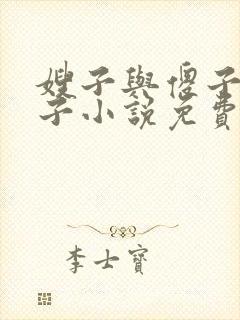 嫂子與傻子
子小說免費
李士寶